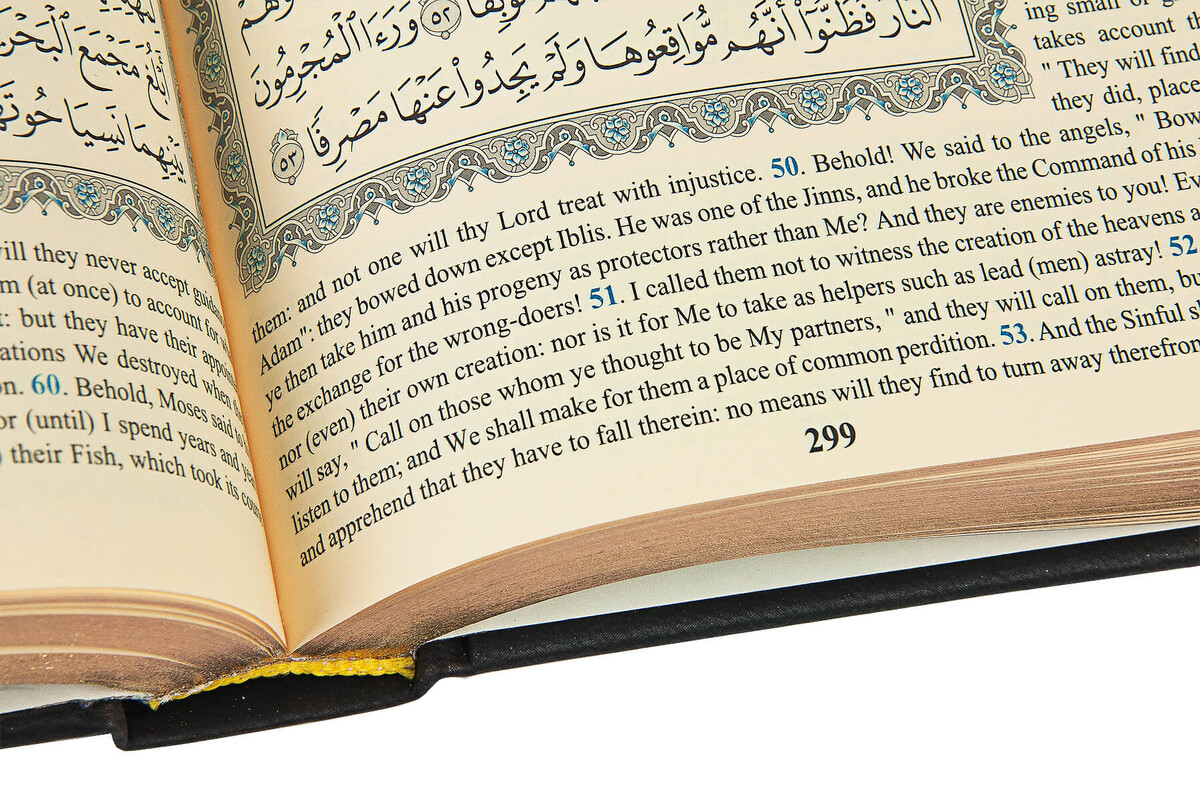 اتلغ مجمع البحر
بينهما نسيا حوته
will they never accept
(at once) to account for
but they have their
We destroyed when
60. Behold, Moses said to
or (until) I spend years and
their Fish, which took its
۵۲
ورءا المجرمون
النار فظنوا أنهم مواقعوها ولم يجدوا عنها مصرفا ۵۳
ing small or
takes account
" They will find
they did, place
them: and not one will thy Lord treat with injustice. 50. Behold! We said to the angels, " Bow
Adam": they bowed down except Iblis. He was one of the Jinns, and he broke the Command of his
ye then take him and his progeny as protectors rather than Me? And they are enemies to you!
the exchange for the wrong-doers! 51. I called them not to witness the creation of the heavens
nor (even) their own creation: nor is it for Me to take as helpers such as lead (men) astray! 52
will say, " Call on those whom ye thought to be My partners, " and they will call on them, but
listen to them; and We shall make for them a place of common perdition. 53. And the Sinful
and apprehend that they have to fall therein: no means will they find to turn away therefrom
299